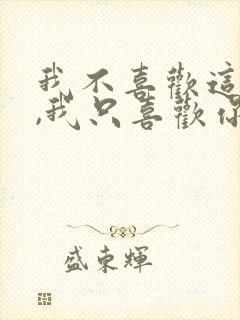 我不喜歡這
,我只喜歡你
盛東輝